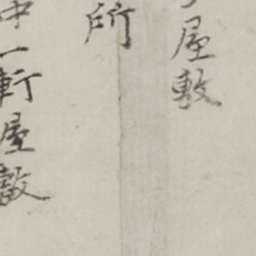 屋敷
所
中一軒屋敷